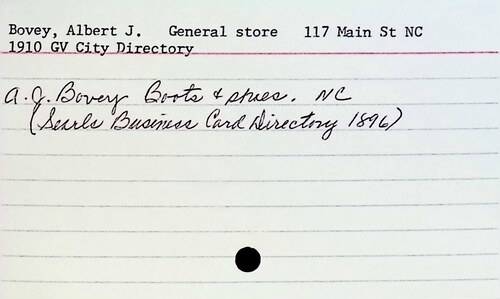 Bovey, Albert J. General store 117 Main St NC
1910 GV City Directory
A.J. Bovey Boots & shoes. NC
(Searls Business Card Directory 1896)